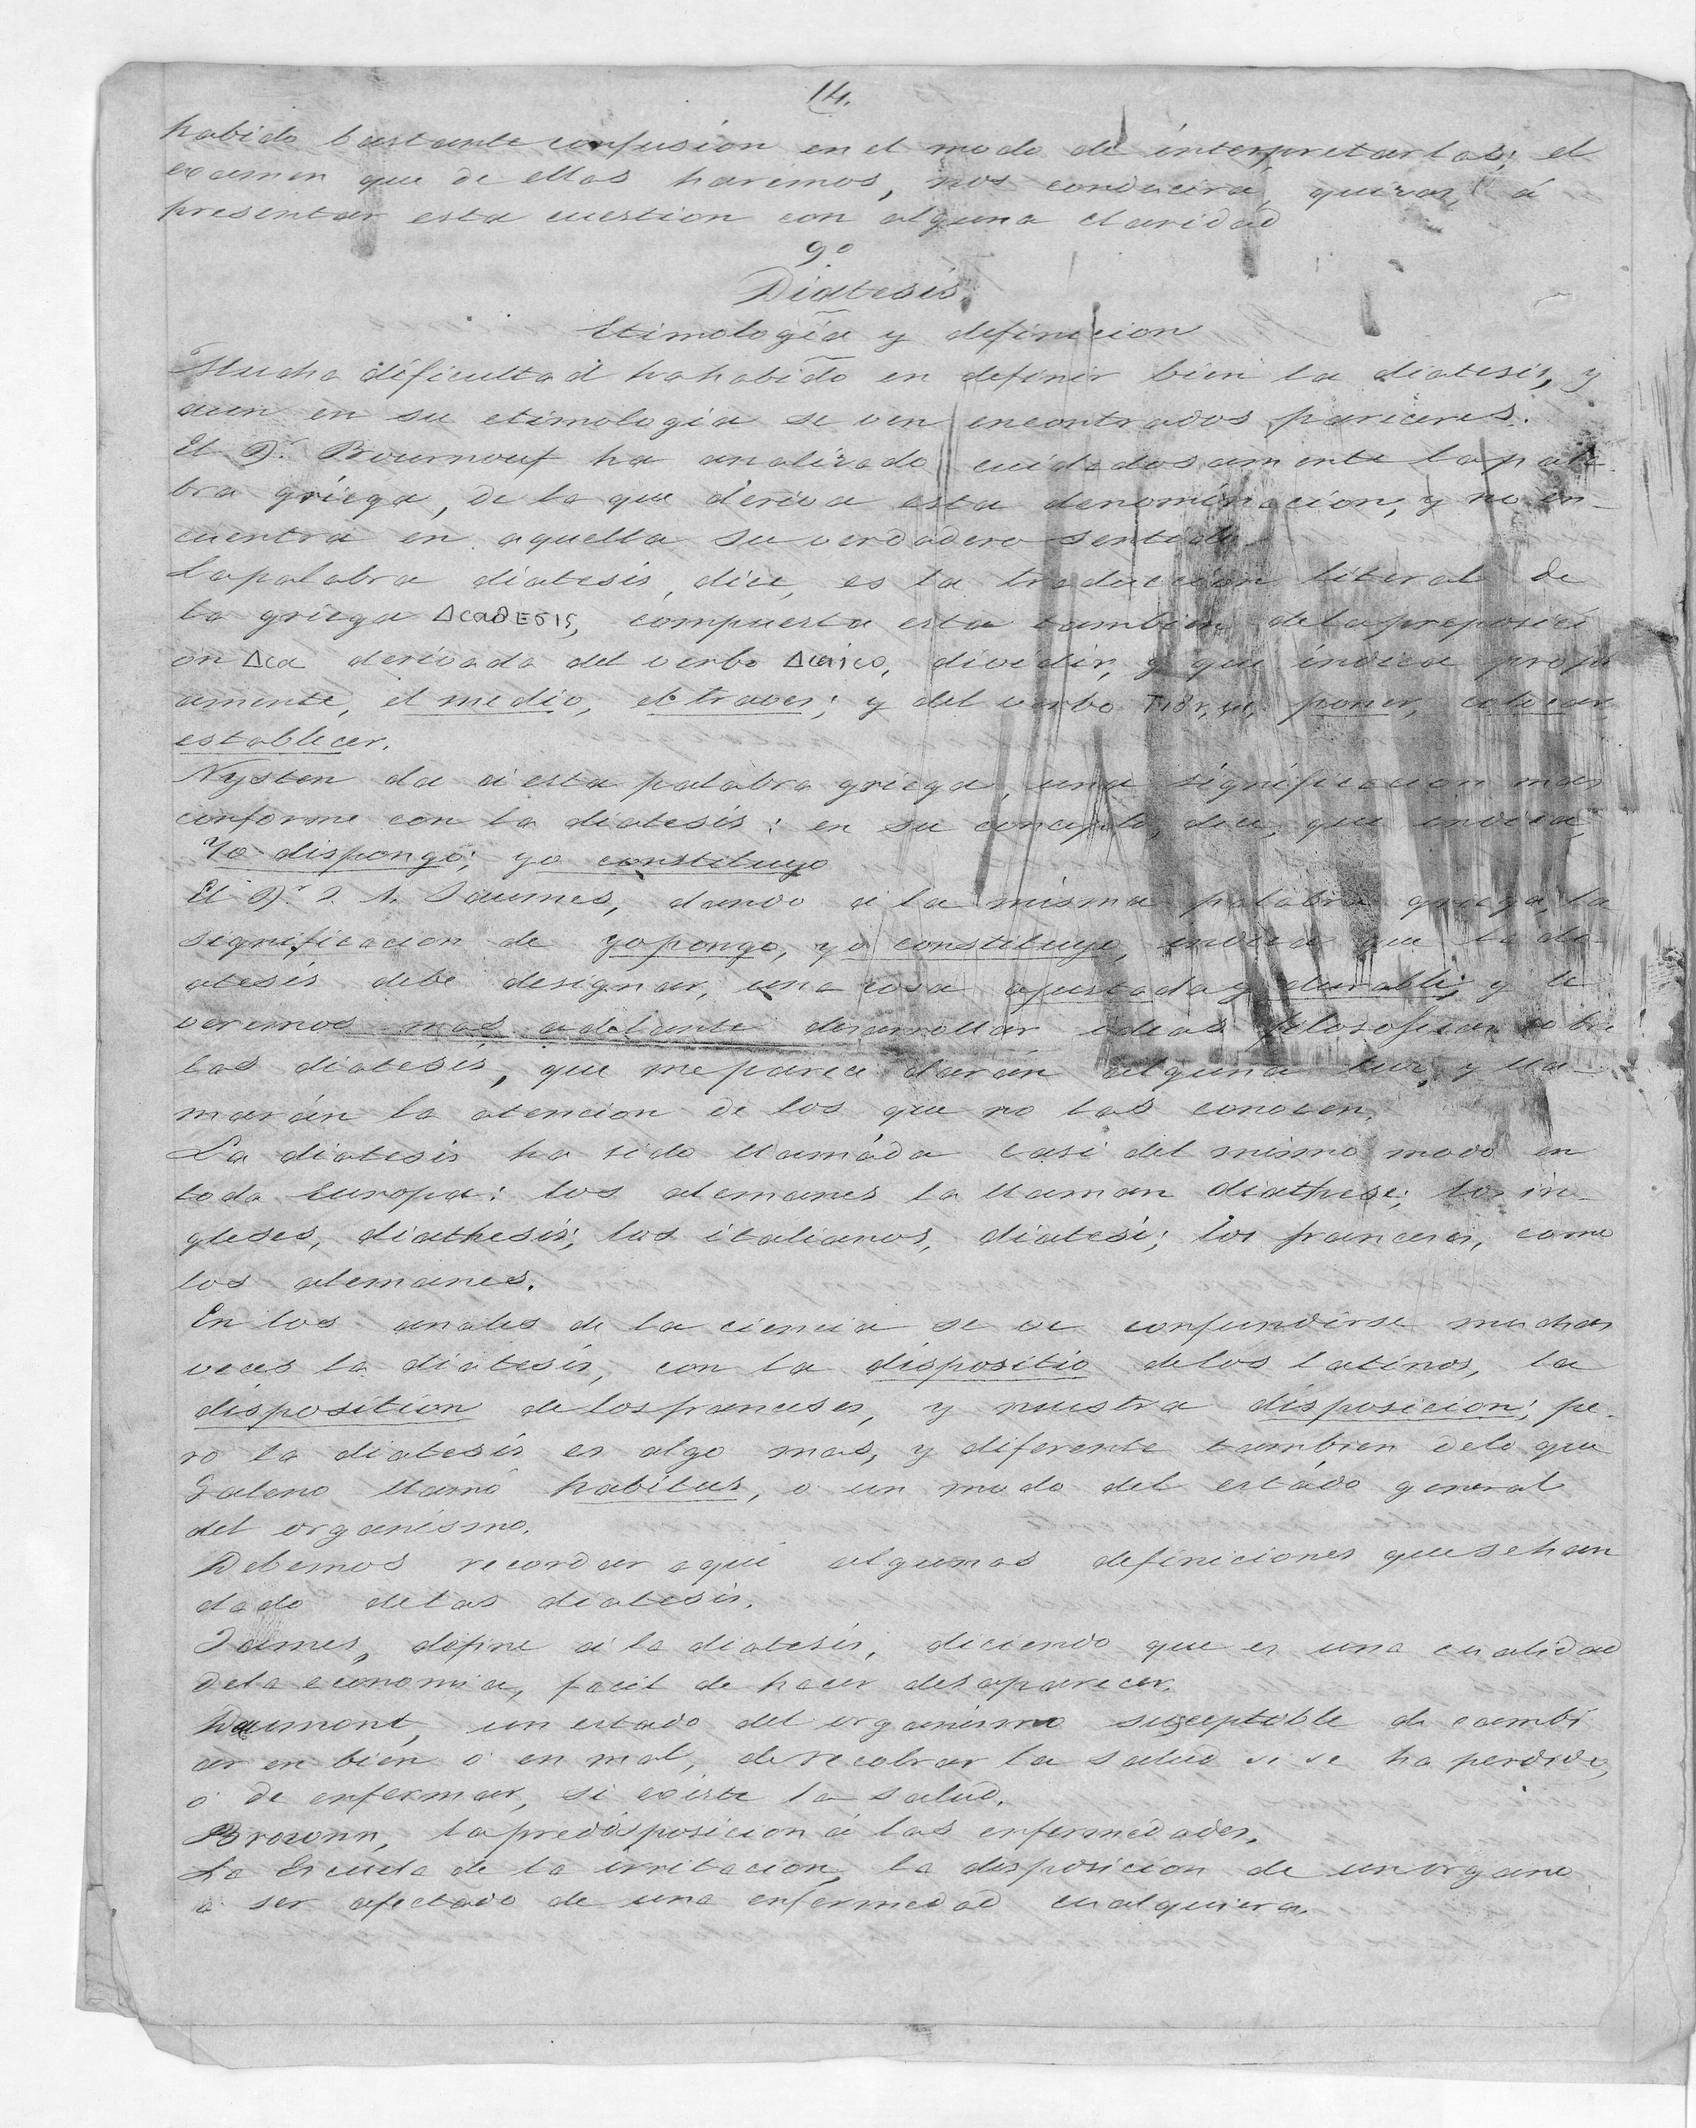 14.
habido bastante confusion en el modo de interpretarlas; el
examen que de ellas haremos, nos conducirá, quizas, á
presentar esta cuestion con alguna claridad
9º
Diatesis.
Etimología y definicion
Mucha dificultad ha habido en definir bien la diatesis, y
aun en su etimologia se ven encontrados pareceres.
El Dr. Bournouf ha analizado cuidadosamente la pala-
bra griega, de la que deriva esta denominacion, y no en-
cuentra en aquella su verdadero sentido.
La palabra diatesis, dice, es la traduccion literal de
la griega Διαθεσις, compuesta esta tambien de la preposici
on Δια derivada del verbo Δαιω, dividir, y que indica propi
amente, el medio, el traves; y del verbo poner, colocar,
establecer.
Nysten da á esta palabra griega, una significacion mas
conforme con la diatesis: en su concepto, dice, que indica,
Yo dispongo; yo constituyo
El Dr. Jaumes, dando á la misma palabra griega, la
significacion de yo pongo, yo constituyo, indica que la di-
atesis debe designar, una cosa ajustada y durable; y le
veremos mas adelante desarrollar ideas filosoficas sobre
las diatesis, que me parece darán alguna luz, y lla-
marán la atencion de los que no las conocen.
La diatesis ha sido llamada casi del mismo modo en
toda Europa: los alemanes la llaman diathese; los in-
gleses, diathesis; los italianos, diatesi; los franceses, como
los alemanes.
En los anales de la ciencia se ve confundirse muchas
veces la diatesis, con la dispositio de los latinos, la
disposition de los franceses, y nuestra disposicion; pe-
ro la diatesis es algo mas, y diferente tambien de lo que
Galeno llamó habitus, o un modo del estádo general
del organismo.
Debemos recordar aquí algunas definiciones que se han
dado de las diatesis.
Jaumes, define á la diatesis, diciendo que es una cualidad
de la economia, facil de hacer desaparecer.
Daumont, un estado del organismo susceptible de cambi
ar en bien o en mal, de recobrar la salud si se ha perdido,
o de enfermar, si existe la salud.
Brownn, la predisposicion á las enfermedades.
La Escuela de la irritacion, la disposicion de un organo
á ser afectado de una enfermedad cualquiera.